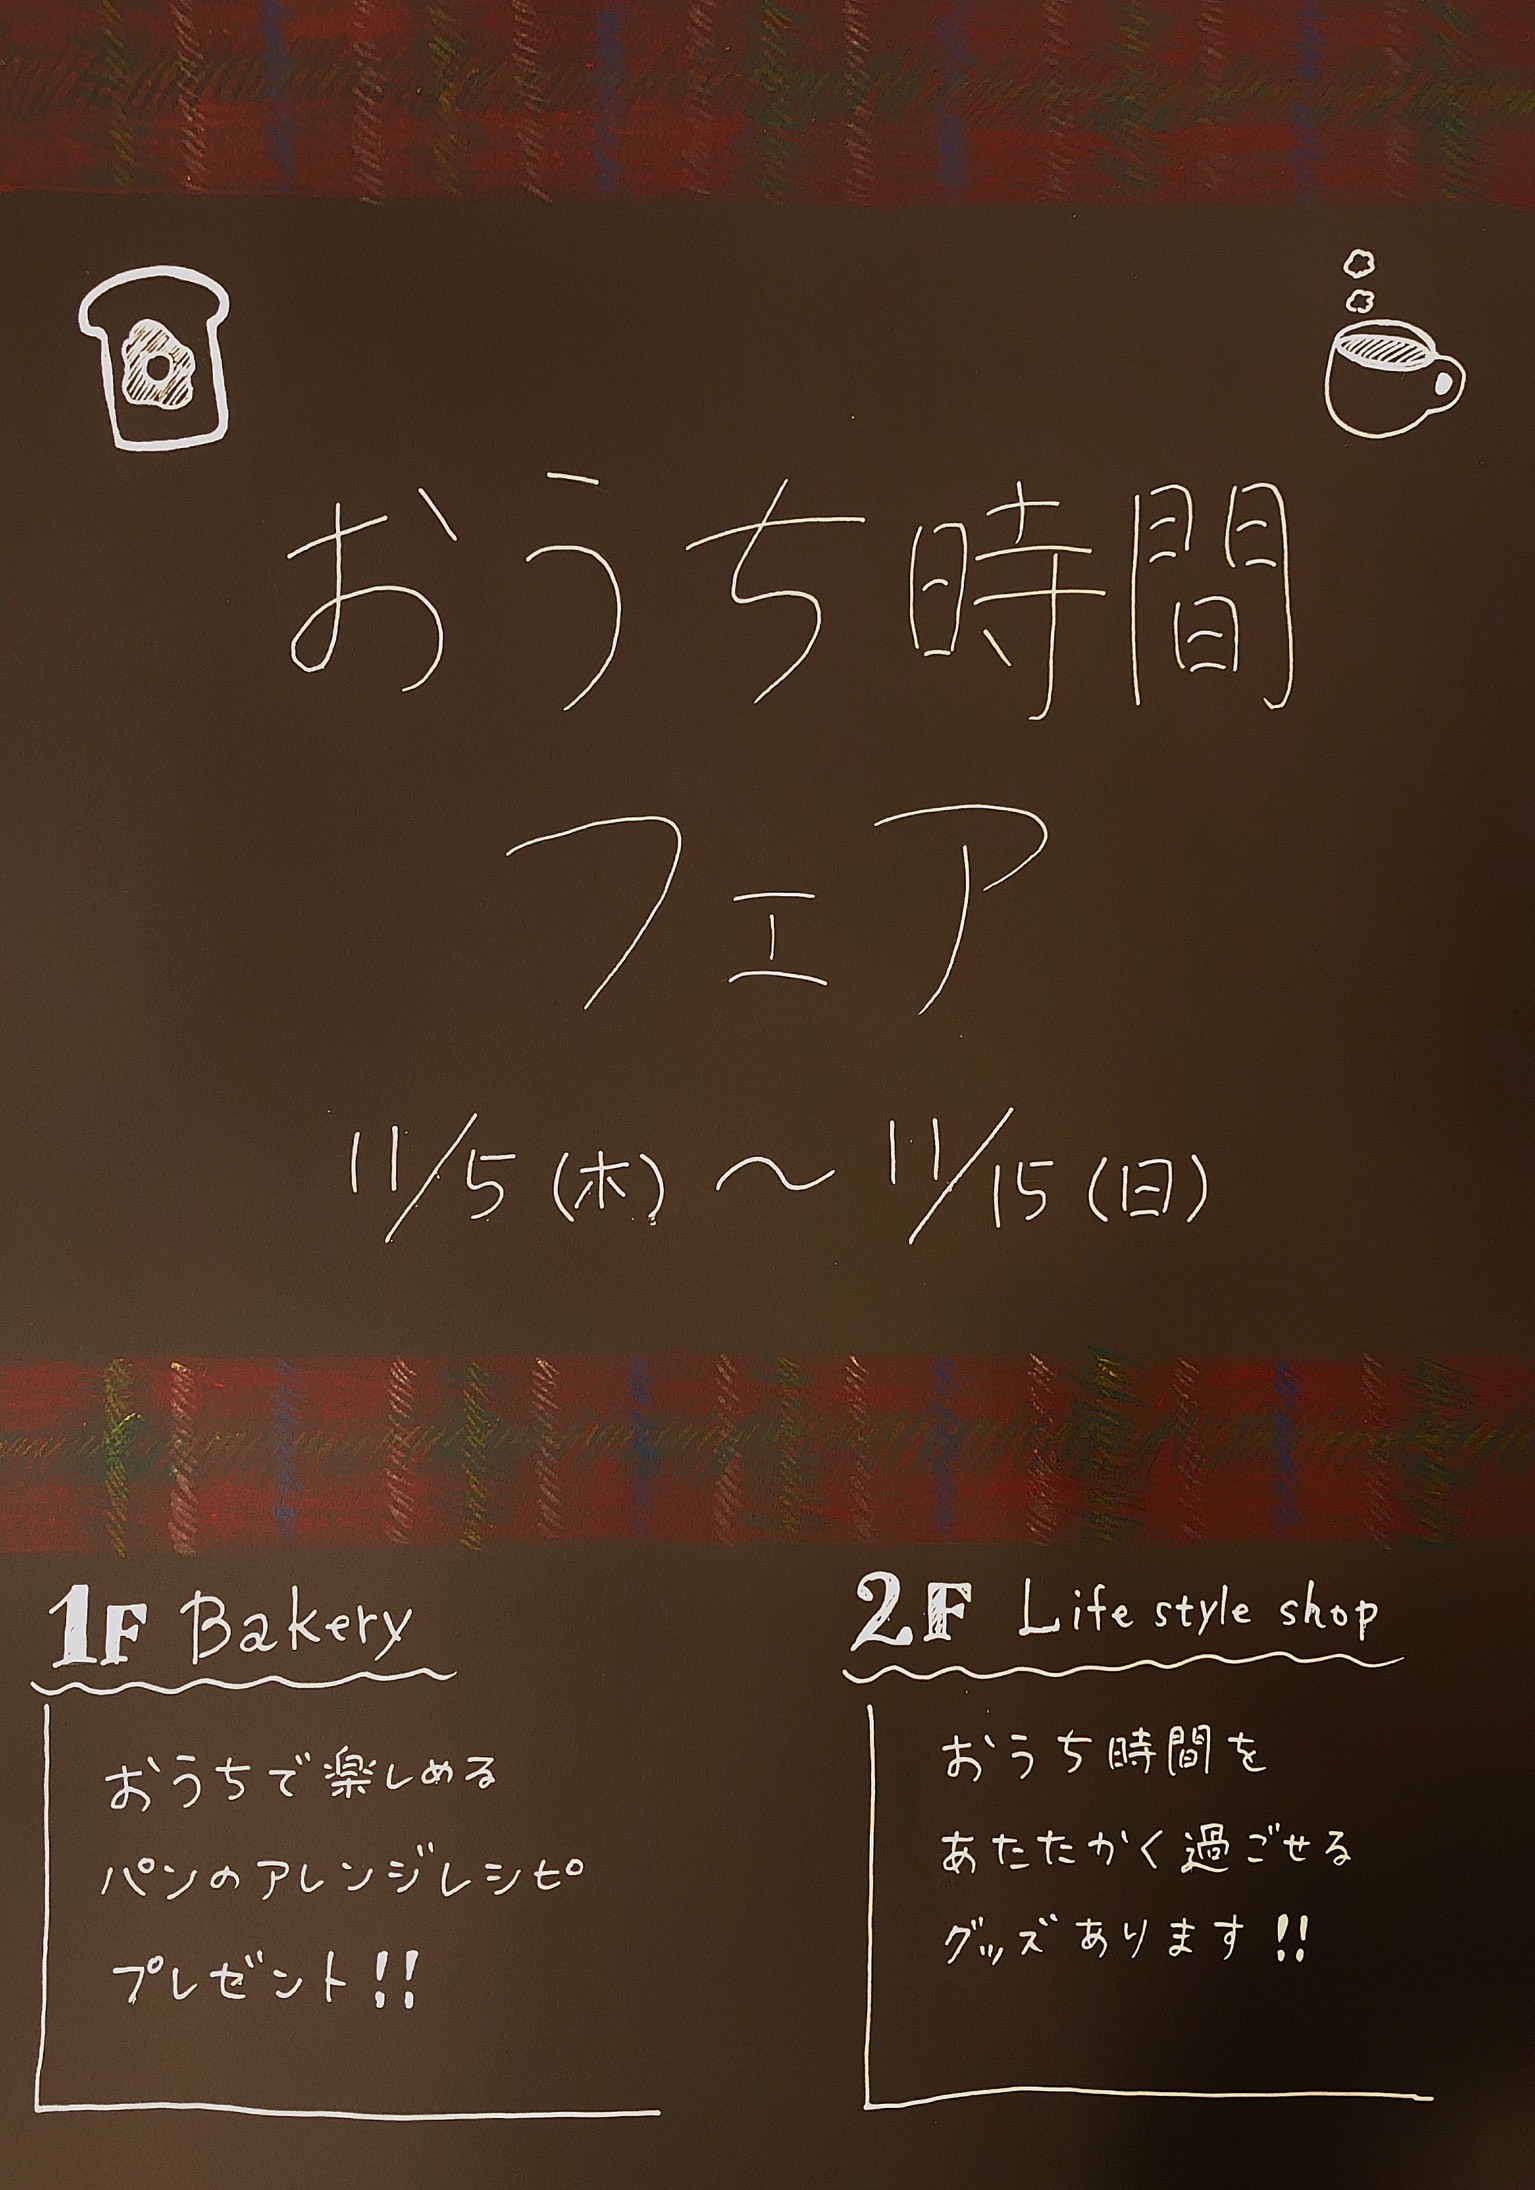 おうち時間
フェア
11/5(木)〜11/15(日)
1F Bakery
おうちで楽しめる
パンのアレンジレシピ
プレゼント!!
2F Life style shop
おうち時間を
あたたかく過ごせる
グッズあります!!